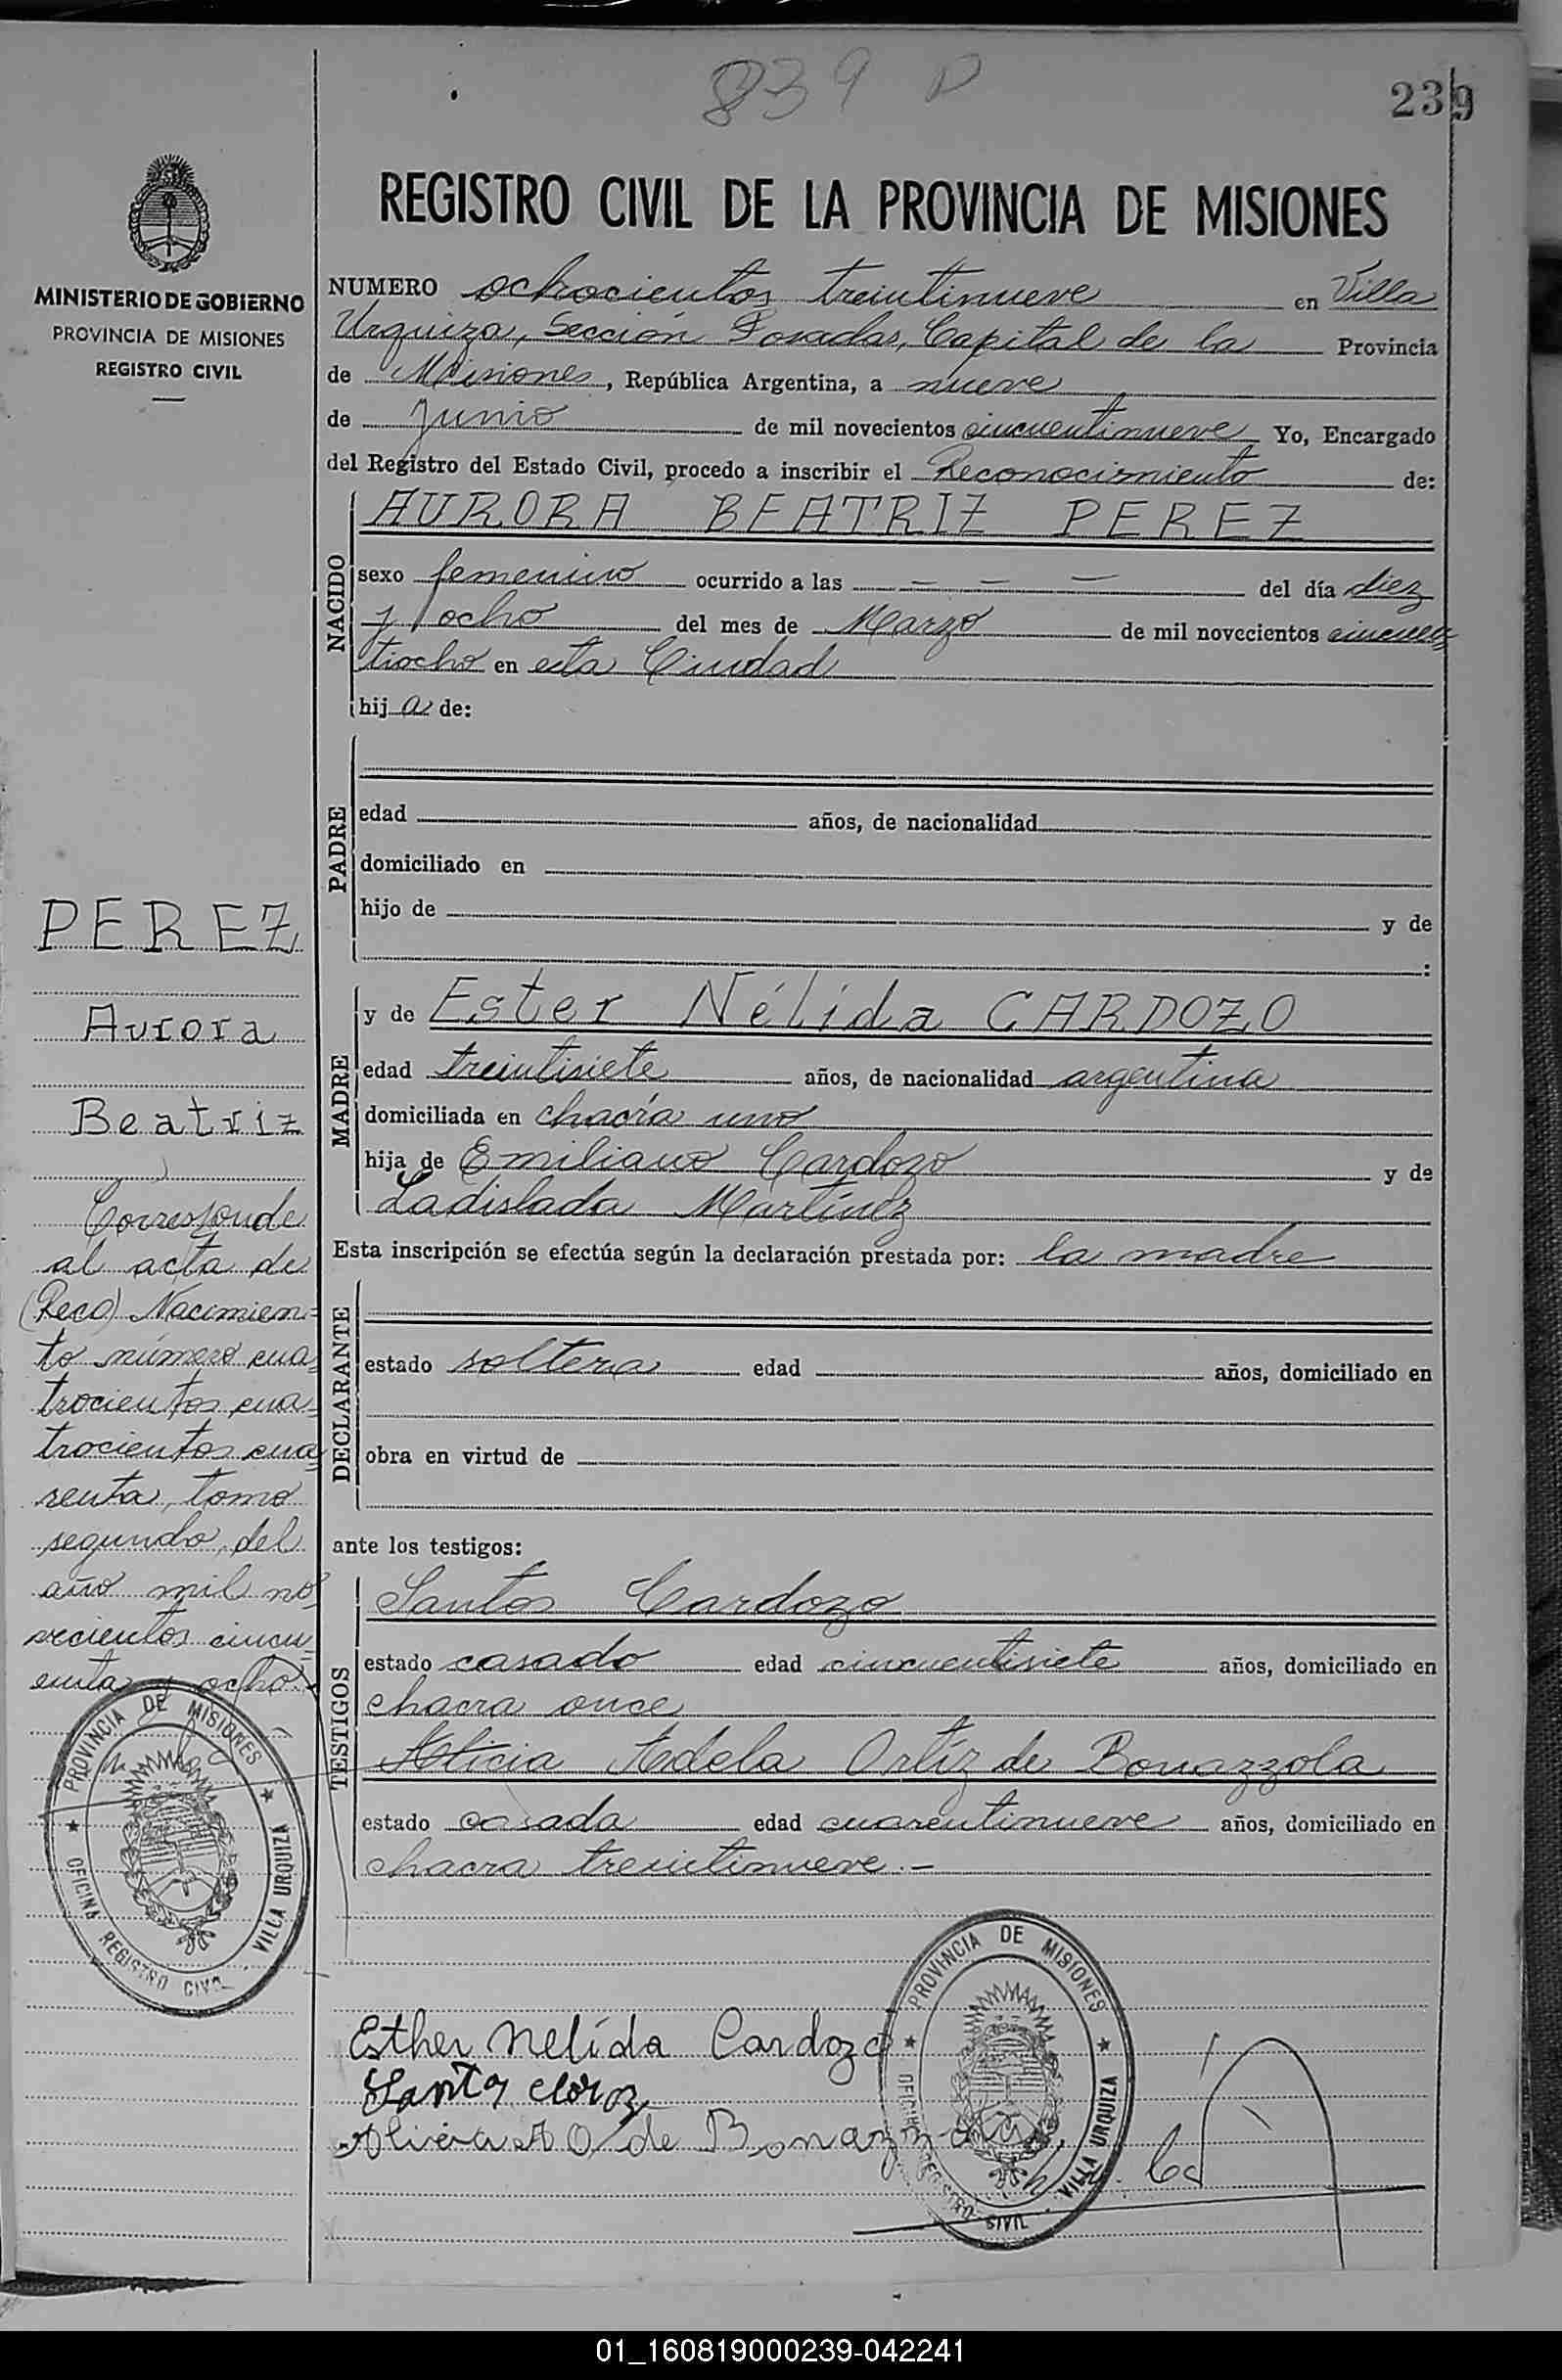 839 P
239
MINISTERIO DE GOBIERNO
PROVINCIA DE MISIONES
REGISTRO CIVIL
REGISTRO CIVIL DE LA PROVINCIA DE MISIONES
NUMERO ochocientos treintinueve en Villa
Urquiza, Sección Posadas, Capital de la Provincia
de Misiones, República Argentina, a nueve
de Junio de mil novecientos cincuentinueve Yo, Encargado
del Registro del Estado Civil, procedo a inscribir el Reconocimiento de:
NACIDO
AURORA BEATRIZ PEREZ
sexo femenino ocurrido a las — — — del día diez
y ocho del mes de Marzo de mil novecientos cincuen
tiocho en esta Ciudad
hij a de:
PADRE
edad años, de nacionalidad
domiciliado en
hijo de y de
:
MADRE
y de Ester Nélida CARDOZO
edad treintisiete años, de nacionalidad argentina
domiciliada en chacra uno
hija de Emiliano Cardozo y de
Ladislada Martínez
Esta inscripción se efectúa según la declaración prestada por: la madre
DECLARANTE
estado soltera edad años, domiciliado en
obra en virtud de
ante los testigos:
TESTIGOS
Santos Cardozo
estado casado edad cincuentisiete años, domiciliado en
chacra once
Alicia Adela Ortíz de Bonazzola
estado casada edad cuarentinueve años, domiciliado en
chacra treintinueve.-
Esther Nelida Cardozo
Alicia A O de Bonazzola
PROVINCIA DE MISIONES
OFICINA REGISTRO CIVIL VILLA URQUIZA
PEREZ
Aurora
Beatriz
Corresponde
al acta de
(Reco) Nacimien=
to número cua
trocientos cua
trocientos cua
renta, tomo
segundo, del
año mil no
vecientos cincu
enta y ocho.-
PROVINCIA DE MISIONES
OFICINA REGISTRO CIVIL VILLA URQUIZA
01_160819000239-042241